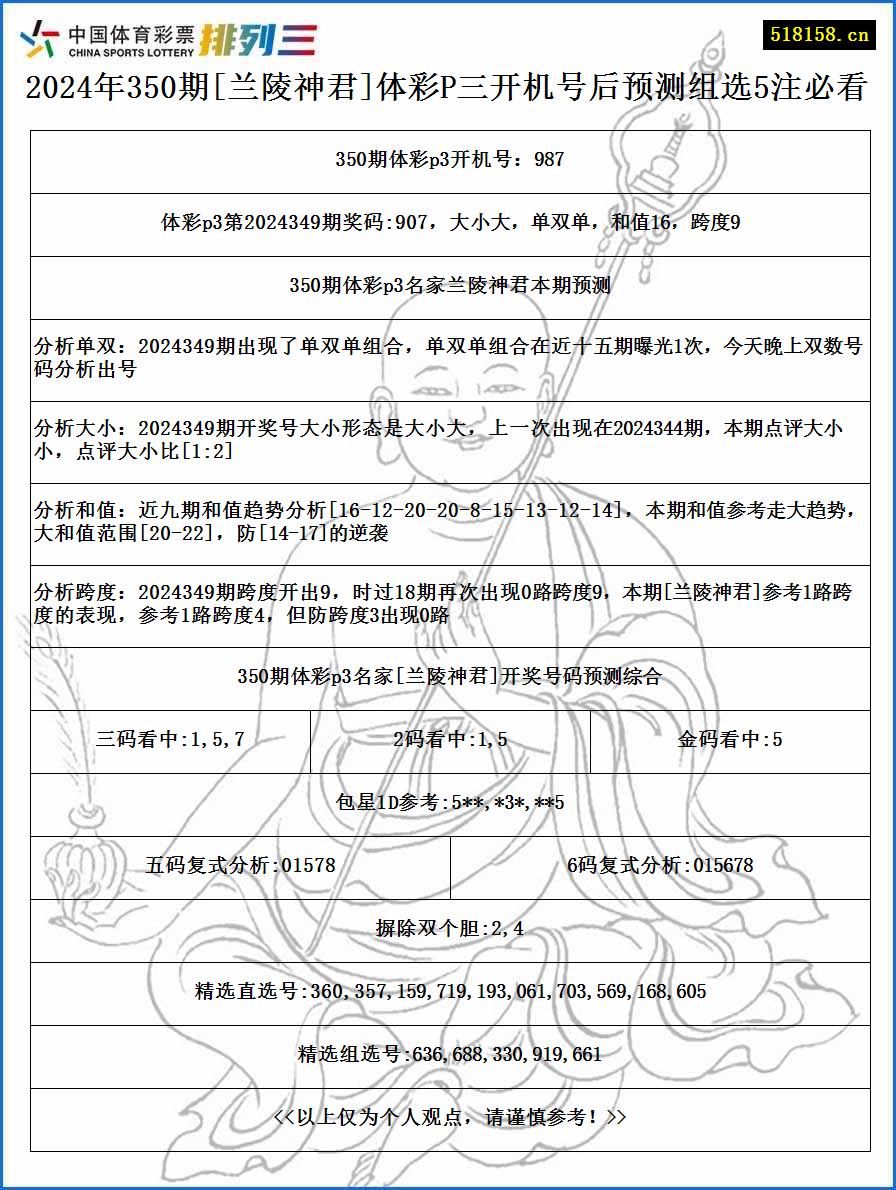 中国体育彩票
CHINA SPORTS LOTTERY
排列三
518158.cn
2024年350期[兰陵神君]体彩P三开机号后预测组选5注必看
350期体彩p3开机号：987
体彩p3第2024349期奖码:907，大小大，单双单，和值16，跨度9
350期体彩p3名家兰陵神君本期预测
分析单双：2024349期出现了单双单组合，单双单组合在近十五期曝光1次，今天晚上双数号
码分析出号
分析大小：2024349期开奖号大小形态是大小大，上一次出现在2024344期，本期点评大小
小，点评大小比[1:2]
分析和值：近九期和值趋势分析[16-12-20-20-8-15-13-12-14]，本期和值参考走大趋势，
大和值范围[20-22]，防[14-17]的逆袭
分析跨度：2024349期跨度开出9，时过18期再次出现0路跨度9，本期[兰陵神君]参考1路跨
度的表现，参考1路跨度4，但防跨度3出现0路
350期体彩p3名家[兰陵神君]开奖号码预测综合
三码看中:1,5,7
2码看中:1,5
金码看中:5
包星1D参考:5**,*3*,**5
五码复式分析:01578
6码复式分析:015678
摒除双个胆:2,4
精选直选号:360,357,159,719,193,061,703,569,168,605
精选组选号:636,688,330,919,661
<<以上仅为个人观点，请谨慎参考！>>